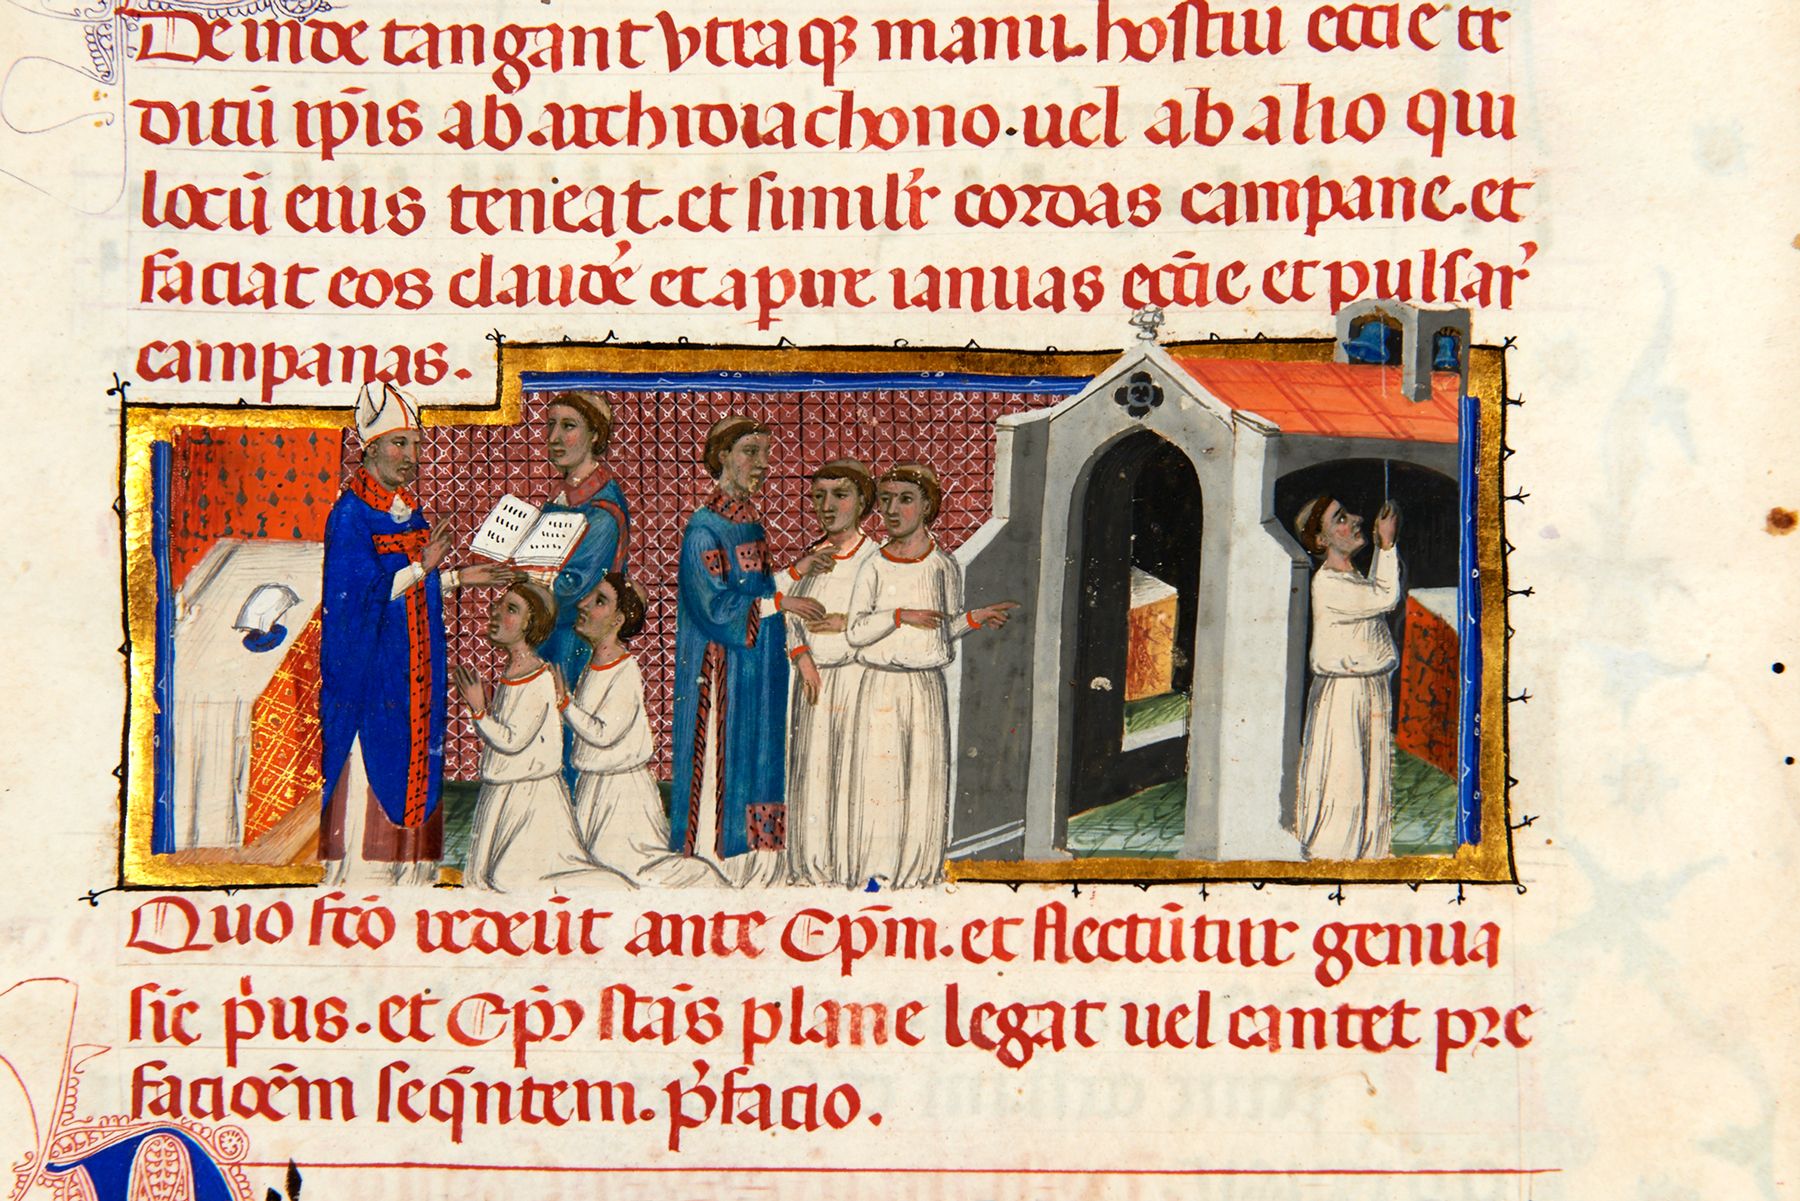 Deinde tangant vtraqꝫ manu hostiū eccĺie tr
ditū ip̄is ab archidiachono. uel ab alio qui
locū eius teneat. et similit̓ cordas campane. et
faciat eos claude̓ et apire ianuas ecc̄ie et pulsar̓
campanas.
Quo fc̄o redeūt ante Ep̄m. et flectūtur genua
sic̄ p̓us. et Ep̄s stās plane legat uel cantet pre
facioēm seq̄ntem. p̓facio.